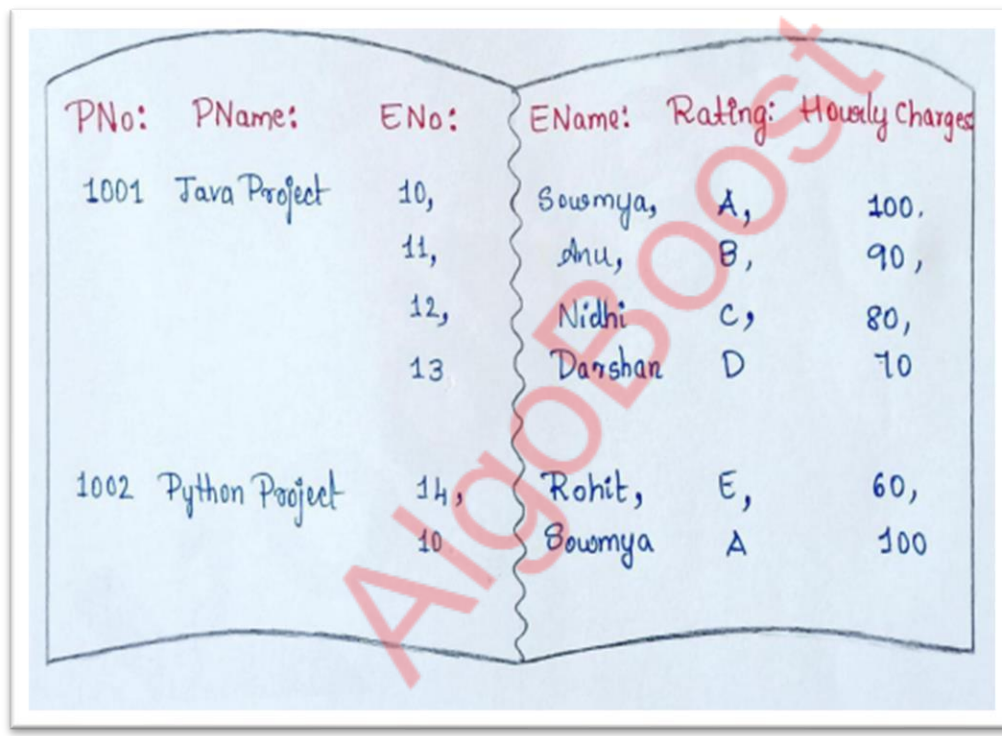 PNo: PName: ENo: EName: Rating: Hourly Charges
1001 Java Project 10, Sowmya, A, 100.
11, Anu, B, 90,
12, Nidhi C, 80,
13 Darshan D 70
1002 Python Project 14, Rohit, E, 60,
10 Sowmya A 100
AlgoBoost